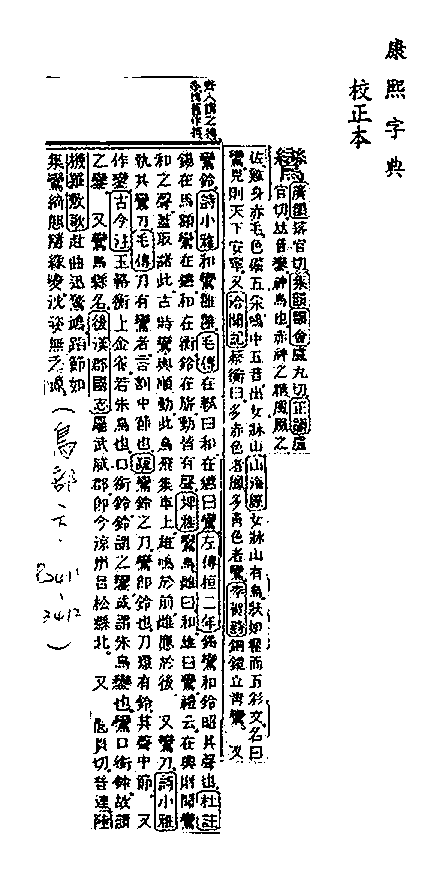 康熙字典
校正本
鸞
廣韻落官切集韻韻會盧丸切正韻盧
官切𠀤音鑾神鳥也赤神之精鳳凰之
佐雞身赤毛色備五采鳴中五音出女牀山山海經女牀山有鳥狀如翟而五彩文名曰
鸞見則天下安寧又洽聞記蔡衡曰多赤色者鳳多靑色者鸞李賀詩銅鏡立靑鸞 又
鸞鈴詩小雅和鸞雝雝毛傳在軾曰和在鑣曰鸞左傳桓二年鍚鸞和鈴昭其聲也杜註
鍚在馬額鸞在鑣和在衡鈴在旂動皆有聲埤雅鸞鳥雌曰和雄曰鸞禮云在輿則聞鸞
和之聲蓋取諸此古時鸞輿順動此鳥飛集車上雄鳴於前雌應於後 又鸞刀詩小雅
執其鸞刀毛傳刀有鸞者言割中節也疏鸞鈴之刀鸞卽鈴也刀環有鈴其聲中節 又
作鑾古今註五輅衡上金雀者朱鳥也口銜鈴鈴謂之鑾或謂朱鳥鸞也鸞口銜鈴故謂
之鑾 又鸞鳥縣名後漢郡國志屬武威郡卽今涼州昌松縣北 又 閭員切音連陸
機 歌赴曲迅驚鴻蹈節如
集鸞綺態隨顏變沈姿無乏源
(鳥部·六·P3411-3412)